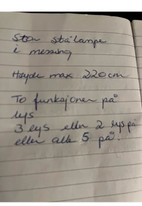 Stor stålampe
i messing
Høyde max 220cm
To funksjoner på
lys
3 lys eller 2 lys på
eller alle 5 på.